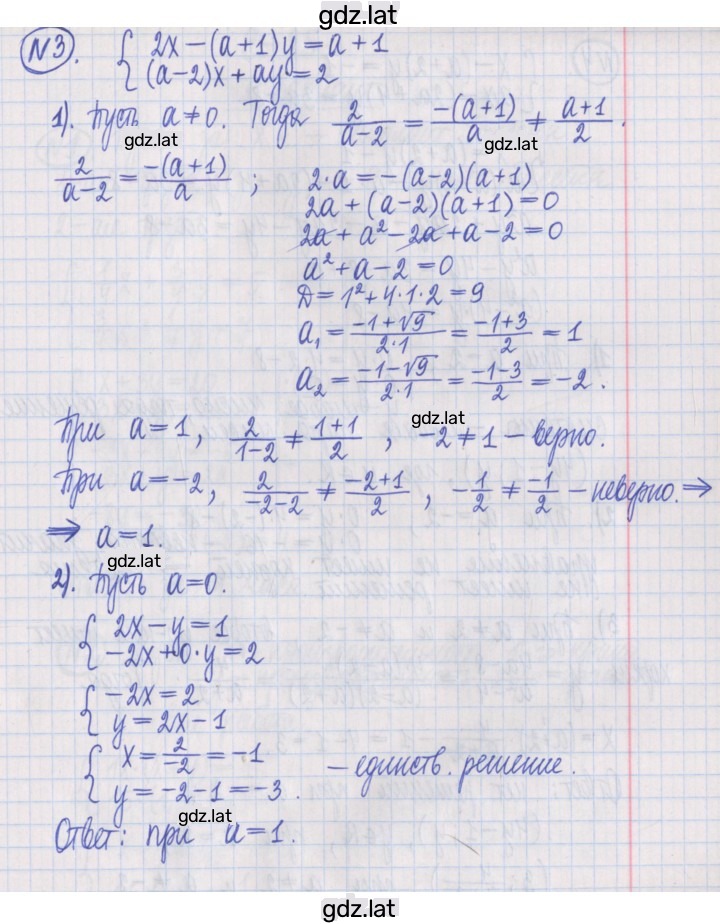 gdz.lat
N3. { 2x − (a+1)y = a+1
(a−2)x + ay = 2
1). Пусть a ≠ 0. Тогда 2/(a−2) = −(a+1)/a ≠ (a+1)/2.
gdz.lat gdz.lat
2/(a−2) = −(a+1)/a ; 2·a = −(a−2)(a+1)
2a + (a−2)(a+1) = 0
2a + a² − 2a + a − 2 = 0
a² + a − 2 = 0
D = 1² + 4·1·2 = 9
a₁ = (−1+√9)/(2·1) = (−1+3)/2 = 1
a₂ = (−1−√9)/(2·1) = (−1−3)/2 = −2.
gdz.lat
При a = 1, 2/(1−2) ≠ (1+1)/2 , −2 ≠ 1 − верно.
При a = −2, 2/(−2−2) ≠ (−2+1)/2 , −1/2 ≠ −1/2 − неверно. ⇒
⇒ a = 1.
gdz.lat
2). Пусть a = 0.
{ 2x − y = 1
−2x + 0·y = 2
{ −2x = 2
y = 2x − 1
{ x = 2/−2 = −1
y = −2 − 1 = −3. − единств. решение.
gdz.lat
Ответ: при a = 1.
gdz.lat